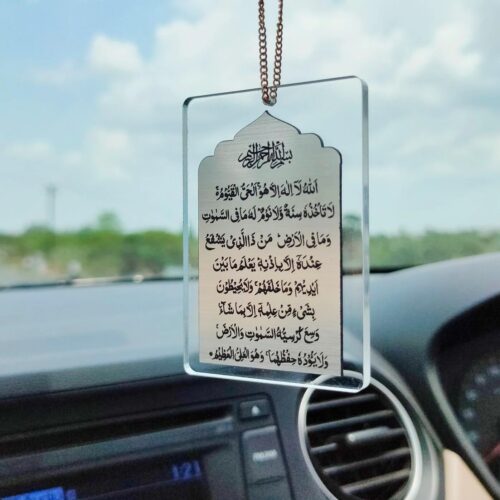 بسم الله الرحمن الرحيم
اَللّٰهُ لَا اِلٰهَ اِلَّا هُوَ اَلْحَیُّ الْقَیُّوْمُ
لَا تَاْخُذُهٗ سِنَةٌ وَّلَا نَوْمٌ لَهٗ مَا فِی السَّمٰوٰتِ
وَمَا فِی الْاَرْضِ مَنْ ذَا الَّذِیْ یَشْفَعُ
عِنْدَهٗ اِلَّا بِاِذْنِهٖ یَعْلَمُ مَا بَیْنَ
اَیْدِیْهِمْ وَمَا خَلْفَهُمْ وَلَا یُحِیْطُوْنَ
بِشَیْءٍ مِّنْ عِلْمِهٖ اِلَّا بِمَا شَآءَ
وَسِعَ كُرْسِیُّهُ السَّمٰوٰتِ وَالْاَرْضَ
وَلَا یَئُوْدُهٗ حِفْظُهُمَا وَهُوَ الْعَلِیُّ الْعَظِیْمُ
121